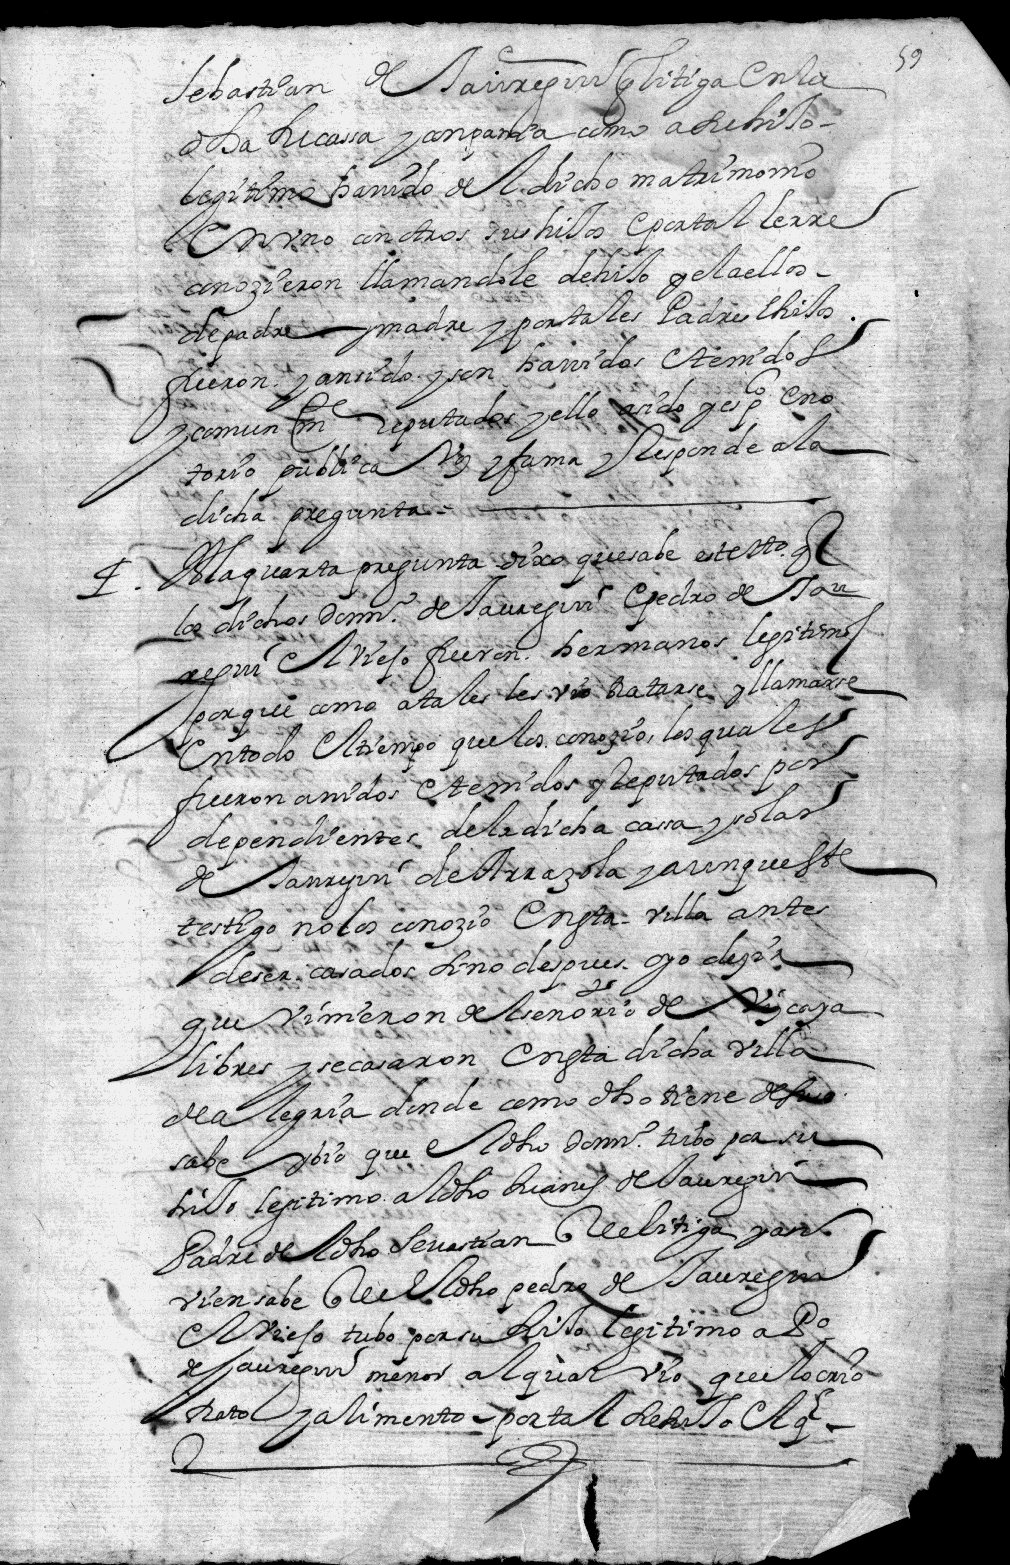 59
sebastian de Jauregui q litiga en la
dha su cassa y conpania como a su hijo
legitimo havido del dicho matrimonio
en uno con otros sus hijos e por tal le rre
conozieron llamandole de hijo y el a ellos
de padre y madre y por tales Padres e hijos
fueron y an sido y son havidos e tenidos
y comun mte reputados y ello a sido y es pco e no
torio publica voz y fama y responde a la
dicha pregunta
4. A la quarta pregunta dixo que sabe este tto. q
los dichos domin.º de Jauregui e pedro de Jau
regui el viejo fueron hermanos legitimos
porque como a tales les vio tratarse y llamarse
en todo el tiempo que los conozio, los quales
fueron avidos e tenidos y reputados por
dependientes de la dicha cassa y solar
de Jauregui de Arrazola y aunque este
testigo no los conozio en esta villa antes
de ser casados sino despues oyo dezir
que vinieron del señorio de Vizcaya
libres y se casaron en esta dicha villa
de alegria donde como dho tiene de suso
sabe y bio que el dho domin.º tubo por su
hijo legitimo al dho Juanes de Jauregui
Padre del dho Sevastian que litiga y assi
vien sabe que el dho pedro de Jauregui
el viejo tubo por su hijo legitimo a Po
de Jauregui menor al qual vio que lo crio
trato y alimento por tal su hijo el q